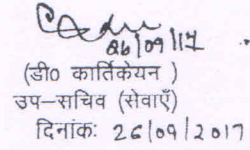 26/09/17
(डी० कार्तिकेयन )
उप-सचिव (सेवाएँ)
दिनांकः 26/09/2017